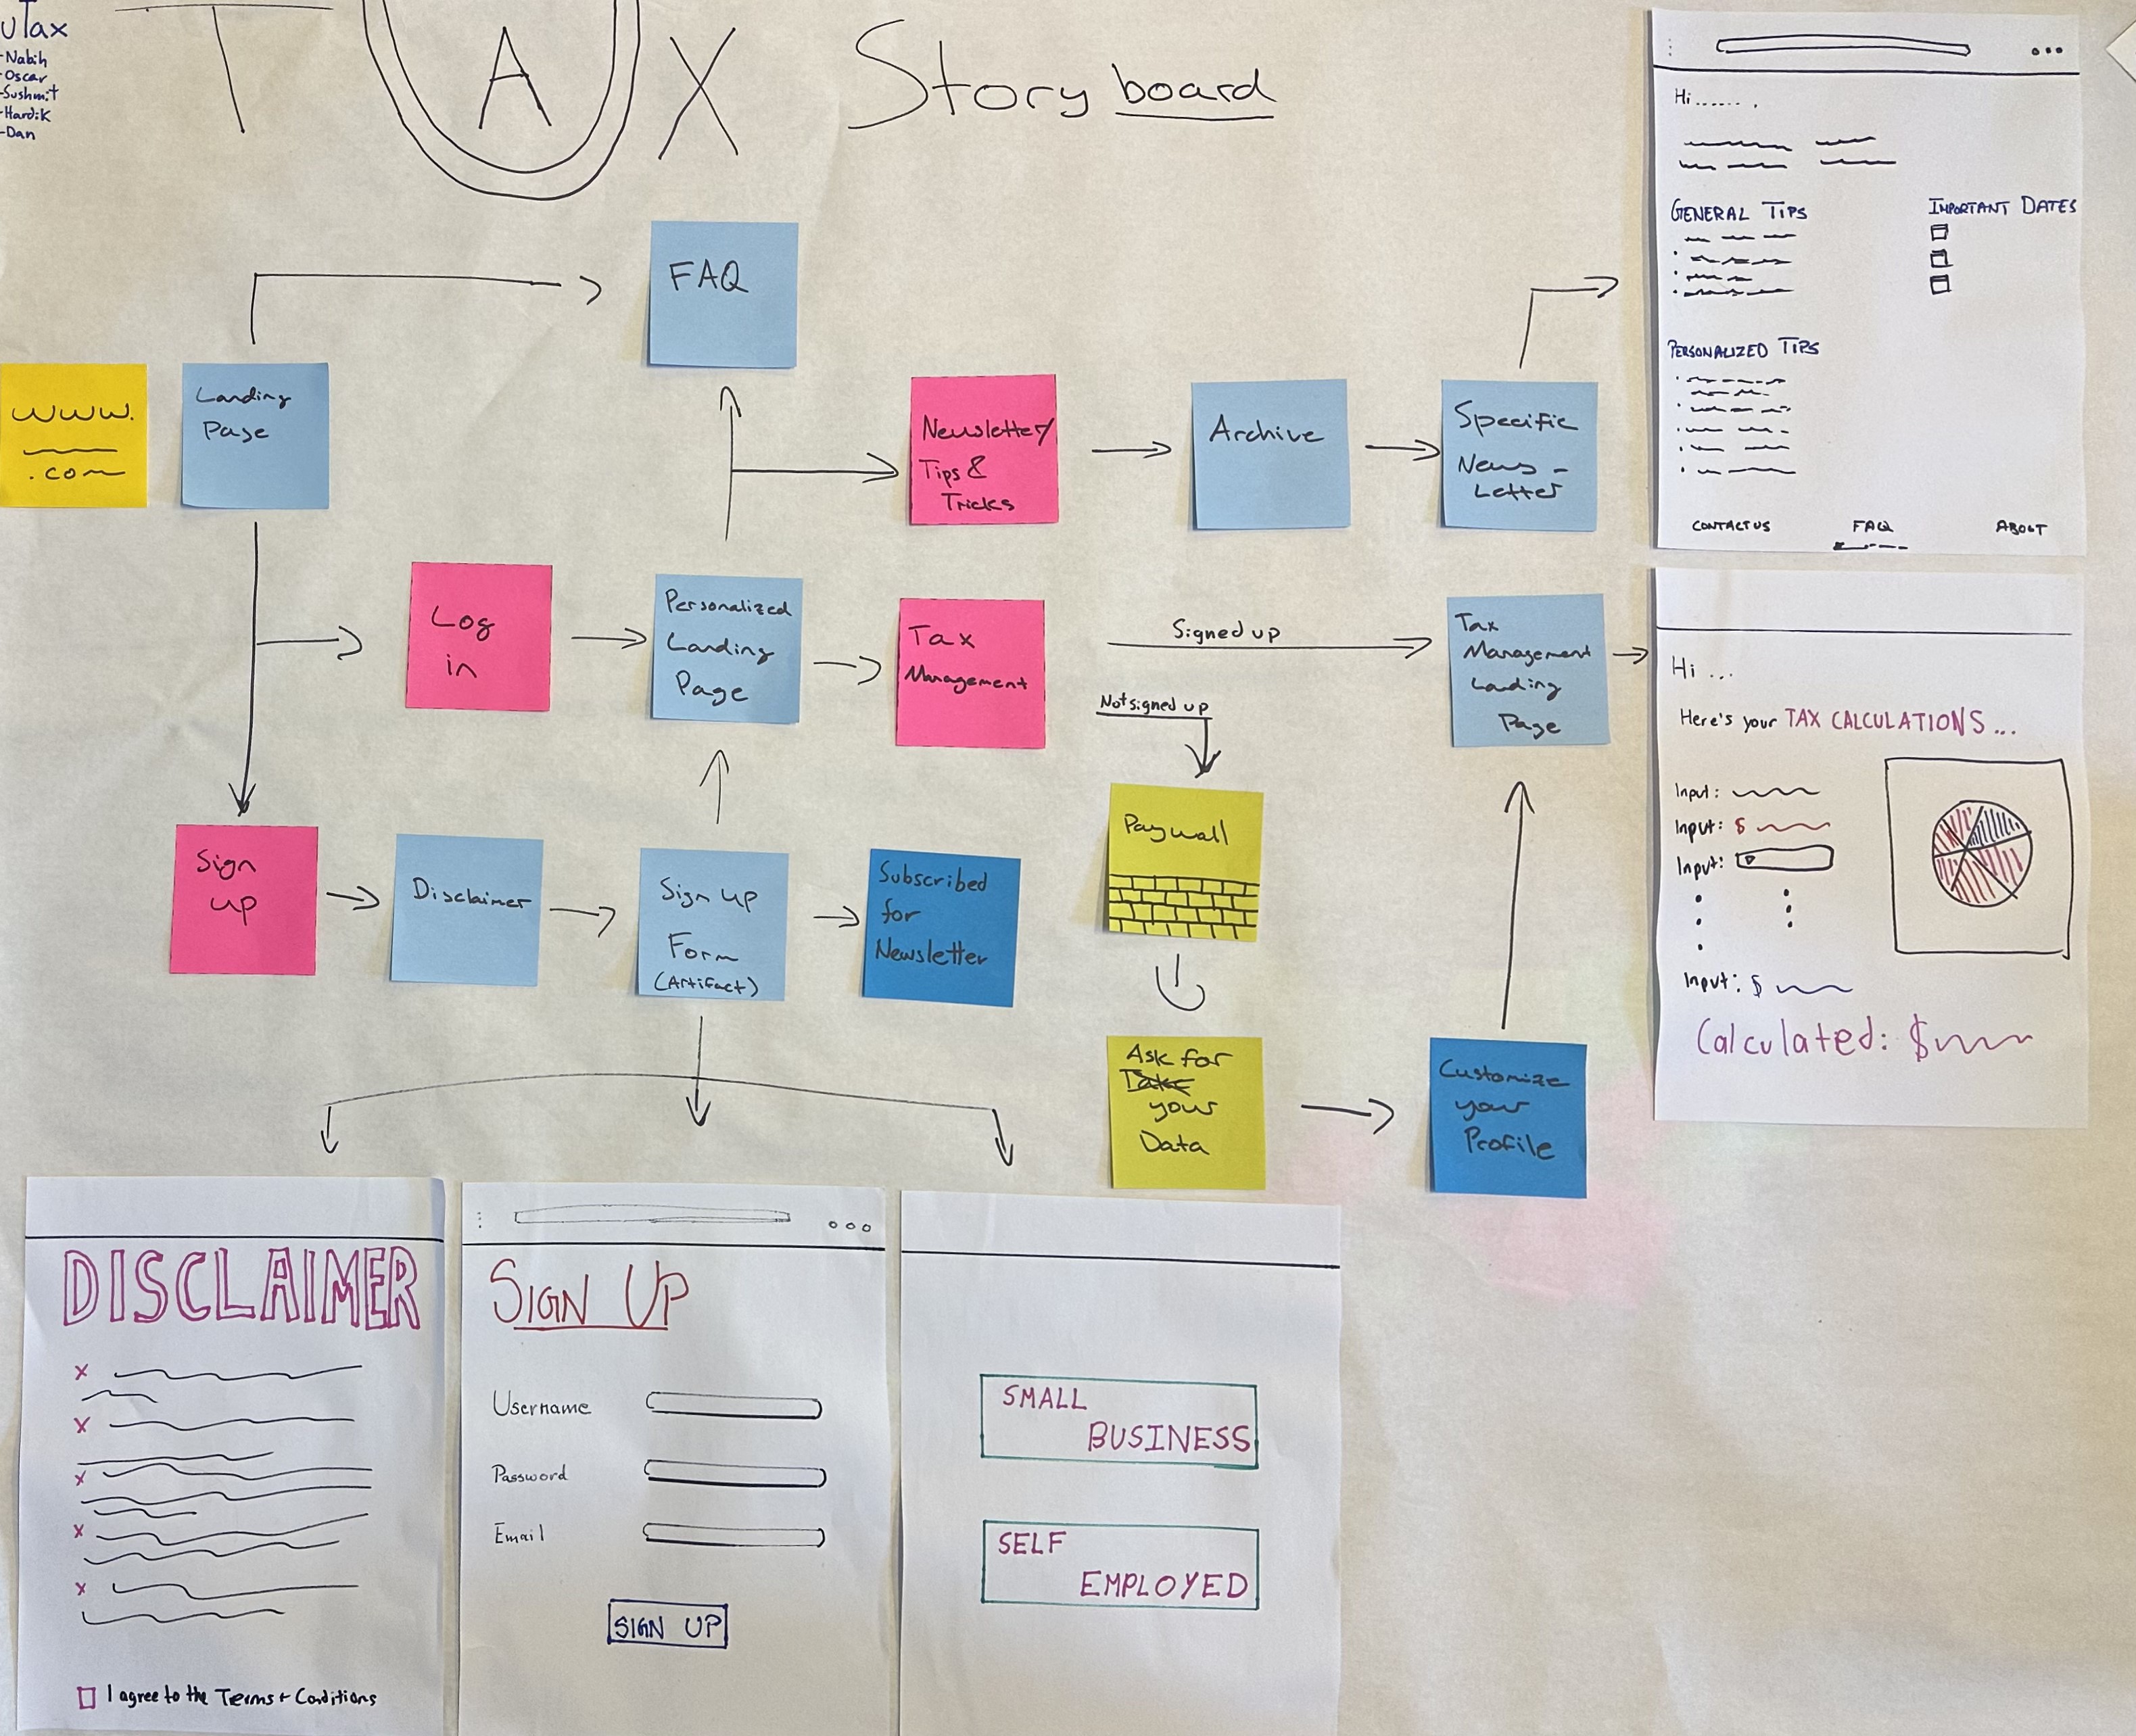 uTax
-Nabih
-Oscar
-Sushmit
-Hardik
-Dan
T A X Story board
FAQ
www.
.com
Landing
Page
Newsletter/
Tips &
Tricks
Archive
Specific
News-
Letter
Log
in
Personalized
Landing
Page
Tax
Management
Signed up
Not signed up
Tax
Management
Landing
Page
Sign
up
Disclaimer
Sign up
Form
(Artifact)
Subscribed
for
Newsletter
Paywall
Ask for
Take
your
Data
Customize
your
Profile
Hi ...... ,
GENERAL TIPS
IMPORTANT DATES
PERSONALIZED TIPS
CONTACT US
FAQ
ABOUT
Hi ...
Here's your TAX CALCULATIONS ...
Input:
Input: $
Input:
Input: $
Calculated: $
DISCLAIMER
x
x
x
x
x
I agree to the Terms + Conditions
SIGN UP
Username
Password
Email
SIGN UP
SMALL
BUSINESS
SELF
EMPLOYED